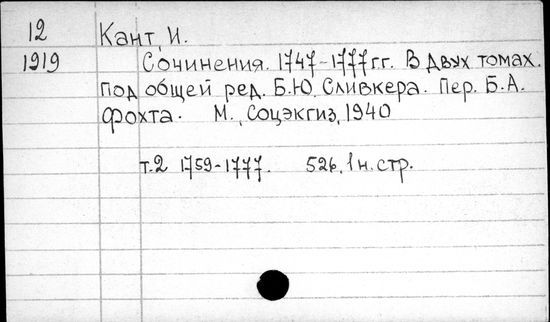 12 Кант, И.
1919 Сочинения. 1747-1777 гг. В двух томах.
под общей ред. Б.Ю. Сливкера. Пер. Б.А.
Фохта. М., Соцэкгиз, 1940
т.2 1759-1777. 526, 1 н. стр.